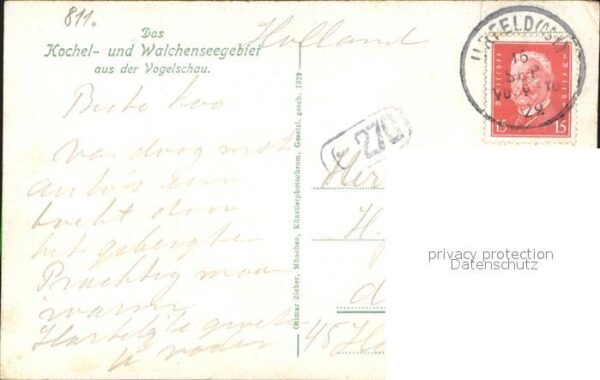 811.
Das
Kochel- und Walchenseegebiet
aus der Vogelschau.
Holland
Beste Koo
Van daag met
auto's een
tocht door
het gebergte
Prachtig maar
warm
Hartelijke groeten
u vader
Ottmar Zieher, München, Künstlerphotochrom, Gesetzl. gesch. 1929
270
URFELD
16
SEP
29
Deutsches Reich
15 15
Her
H
d
45 Ha
privacy protection
Datenschutz